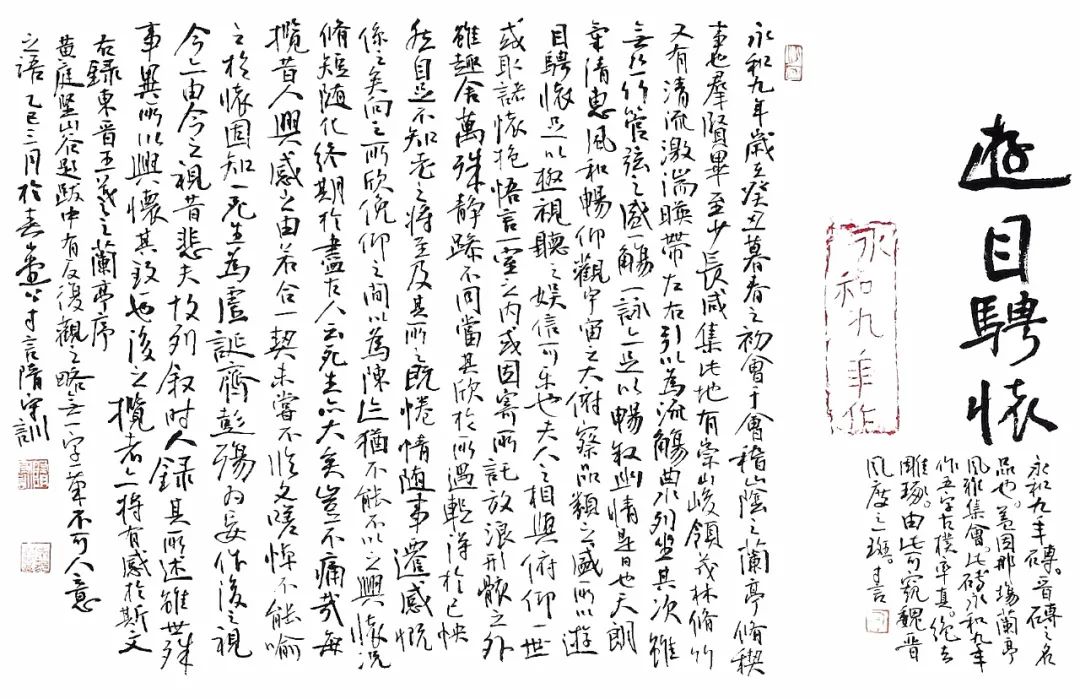 遊目騁懷
永和九年作
永和九年磚。晉磚之名
品也。蓋因那場蘭亭
風雅集會。此磚永和九年
作五字古樸率真。絕去
雕琢。由此可窺魏晉
風度之一斑。寸言
永和九年歲在癸丑暮春之初會于會稽山陰之蘭亭脩稧
事也群賢畢至少長咸集此地有崇山峻領茂林脩竹
又有清流激湍暎帶左右引以為流觴曲水列坐其次雖
無絲竹管弦之盛一觴一詠亦足以暢敘幽情是日也天朗
氣清惠風和暢仰觀宇宙之大俯察品類之盛所以遊
目騁懷足以極視聽之娛信可樂也夫人之相與俯仰一世
或取諸懷抱悟言一室之內或因寄所託放浪形骸之外
雖趣舍萬殊靜躁不同當其欣於所遇暫得於己怏
然自足不知老之將至及其所之既惓情隨事遷感慨
係之矣向之所欣俛仰之間以為陳迹猶不能不以之興懷況
脩短隨化終期於盡古人云死生亦大矣豈不痛哉每
攬昔人興感之由若合一契未嘗不臨文嗟悼不能喻
之於懷固知一死生為虛誕齊彭殤為妄作後之視
今亦由今之視昔悲夫故列叙時人錄其所述雖世殊
事異所以興懷其致一也後之攬者亦將有感於斯文
右錄東晉王羲之蘭亭序
黃庭堅嘗題跋中有反復觀之略無一字一筆不可人意
之語乙巳三月於寸言隋守訓